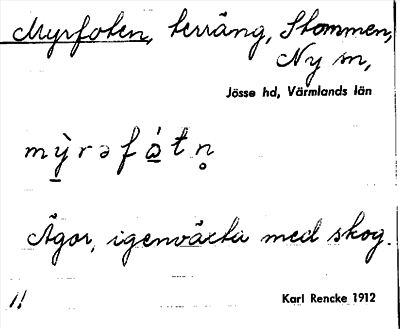 Myrfoten, terräng, Stommen,
Ny sn,
Jösse hd, Värmlands län
Ägor, igenväxta med skog.
Karl Rencke 1912